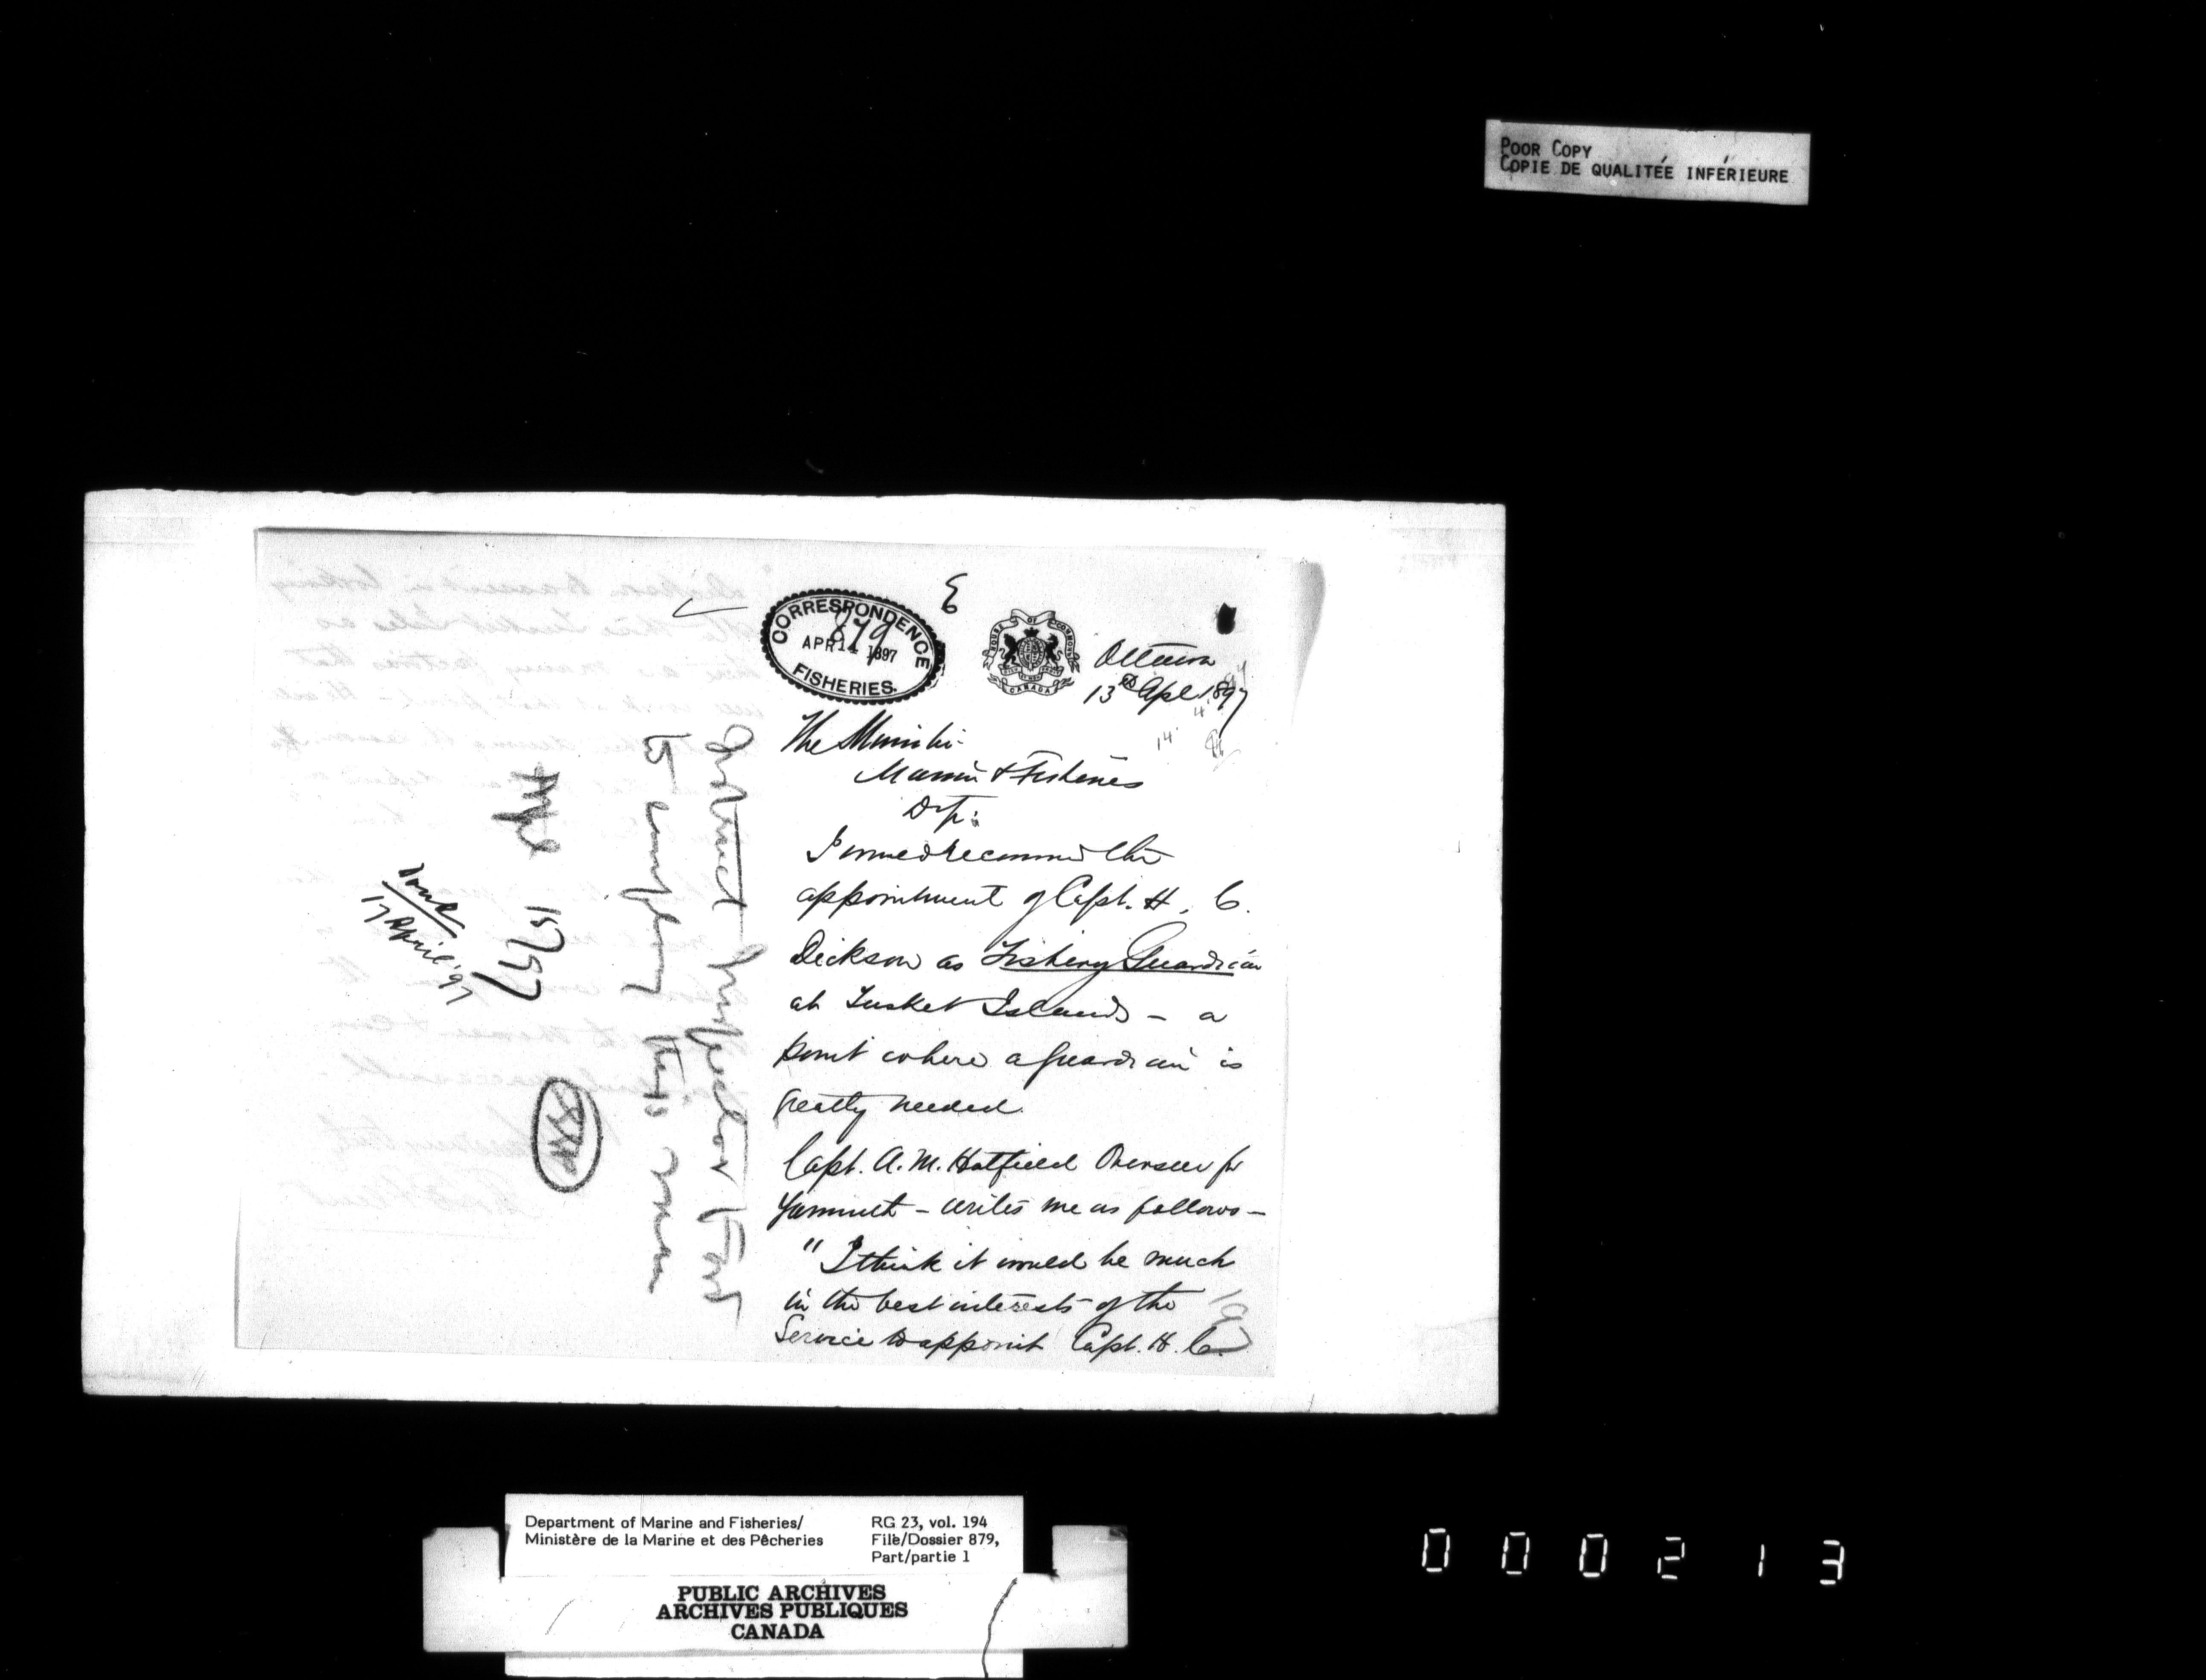 POOR COPY
COPIE DE QUALITÉE INFÉRIEURE
E
CORRESPONDENCE
879
APR 14 1897
FISHERIES.
HOUSE OF COMMONS
CANADA
Ottawa
13th Apl 1897
The Minister
Marine & Fisheries
Dep:
I would recommend the
appointment of Capt. H. C.
Dickson as Fishery Guardian
at Tusket Islands – a
point where a guardian is
greatly needed.
Capt. A. M. Hatfield Overseer for
Yarmouth – writes me as follows –
"I think it would be much
in the best interests of the
Service to appoint Capt. H. C.
197
Instruct Inspector Ford
to employ this man
Apl 15/97
Done
17 April '97
Department of Marine and Fisheries/
Ministère de la Marine et des Pêcheries
RG 23, vol. 194
File/Dossier 879,
Part/partie 1
PUBLIC ARCHIVES
ARCHIVES PUBLIQUES
CANADA
000213